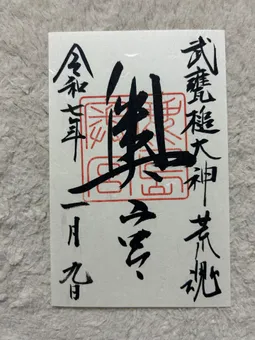 武甕槌大神荒魂
奥宮
令和七年
一月九日